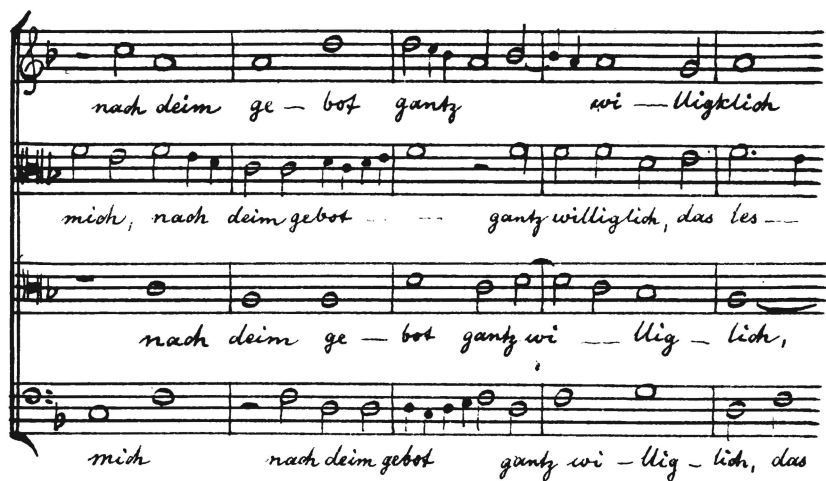 nach deim ge – bot gantz wi — lligklich
mich, nach deim gebot - - --- gantz williglich, das les ---
nach deim ge – bot gantz wi __ llig – lich,
mich nach deim gebot gantz wi – llig – lich, das